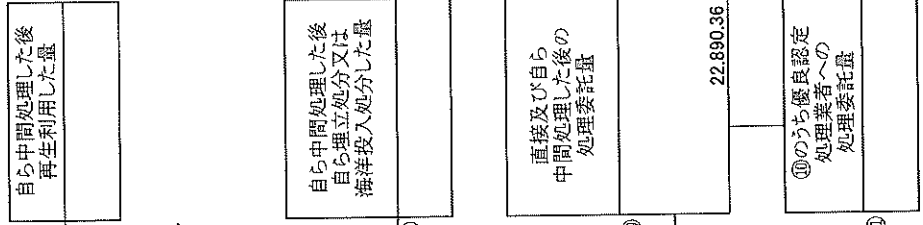 自ら中間処理した後
再生利用した量
自ら中間処理した後
自ら埋立処分又は
海洋投入処分した量
直接及び自ら
中間処理した後の
処理委託量
22.890.36
⑩のうち優良認定
処理業者への
処理委託量